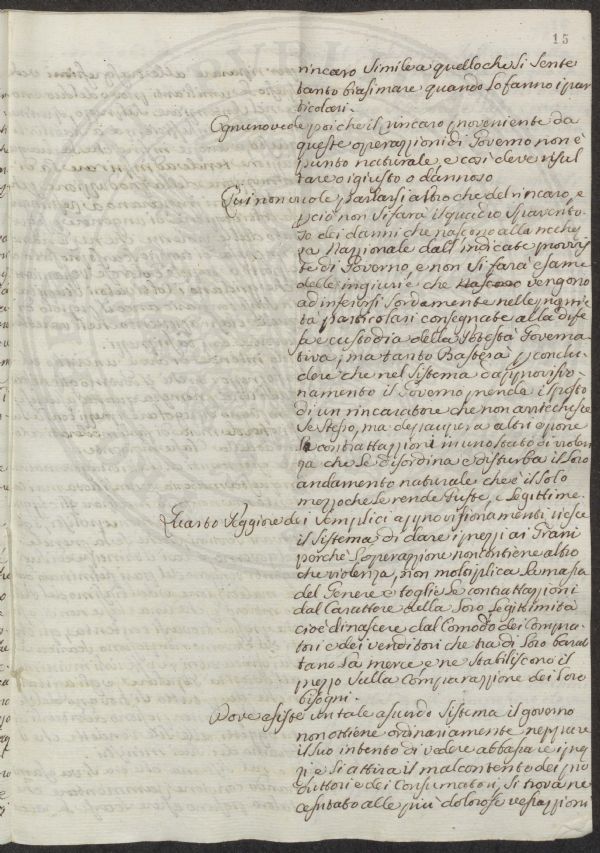 15
rincaro simile a quello che si sente
tanto biasimare quando lo fanno i par
ticolari.
Ognuno vede poi che il rincaro proveniente da
queste operazzioni di Governo non è
punto naturale, e così deve risul
tare o ingiusto o dannoso
Qui non vuole parlarsi altro che del rincaro, e
pciò non si farà il quadro spavento
so dei danni che nascono alla riche
za Nazzionale dall'indicate provvis
te di Governo, e non si farà esame
delle ingiurie che vengono
ad inferirsi sordamente nelle propie
tà particolari consegnate alla dife
sa e custodia della Potestà Governa
tiva; ma tanto basterà p conclu
dere che nel sistema d'approvisio
namento il Governo prende il posto
di un rincaratore che non arricchisce
se stesso, ma depaupera altri e pone
le contrattazzioni in uno stato di violen
za che le disordina e disturba il loro
andamento naturale che è il solo
mezzo che le rende giuste, e legittime.
Quanto peggiore dei semplici approvisionamenti riesce
il sistema di dare i prezzi ai Grani
perchè l'operazzione non contiene altro
che violenza, non moltiplica la massa
del Genere e toglie le contrattazzioni
dal carattere della loro legittimità
cioè di nascere dal comodo dei compra
tori e dei venditori che tra di loro barat
tano la merce e ne stabiliscono il
prezzo sulla comparazzione dei loro
bisogni.
Dove esiste un tale assurdo sistema il governo
non ottiene ordinariamente neppure
il suo intento di vedere abbassare i prez
zi e si attira il malcontento dei pro
duttori e dei consumatori, si trova ne
cessitato alle più dolorose vessazzioni